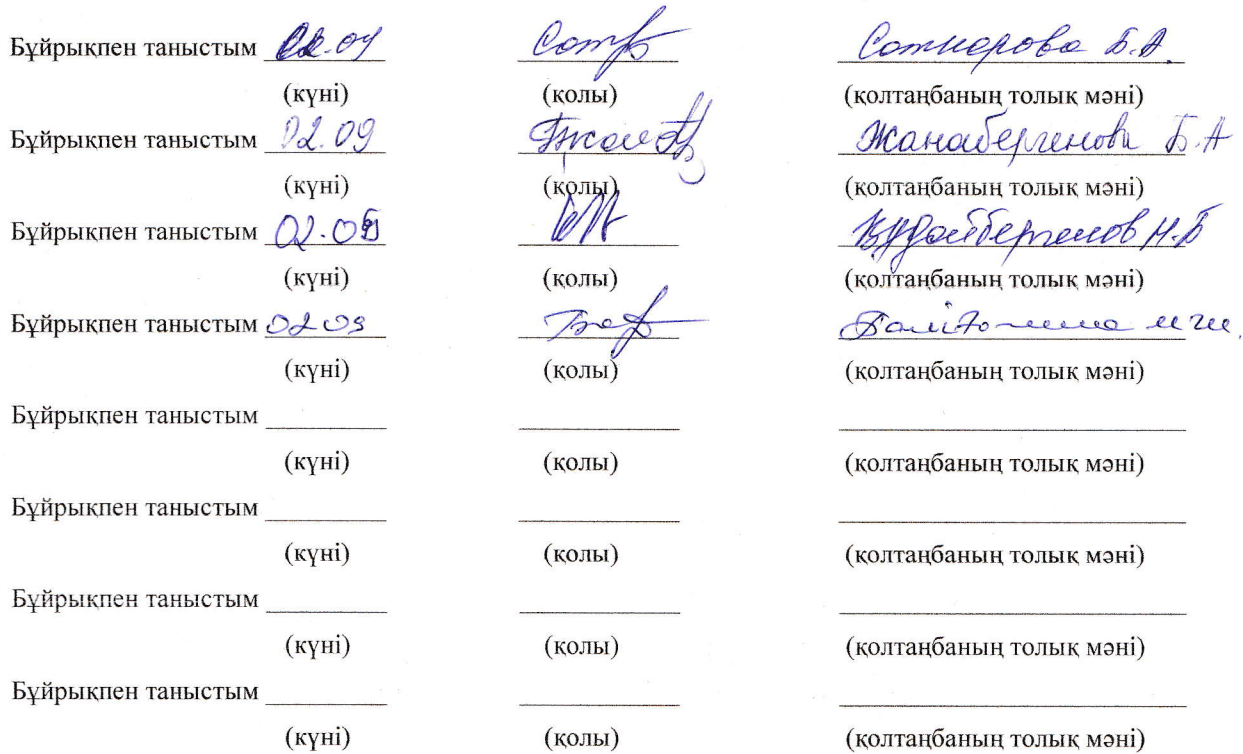 Бұйрықпен таныстым 02.09 Сотнарова Б.А.
(күні) (қолы) (қолтаңбаның толық мәні)
Бұйрықпен таныстым 02.09 Жанабергенова Б.А
(күні) (қолы) (қолтаңбаның толық мәні)
Бұйрықпен таныстым 02.09 Құдайбергенов Н.Б
(күні) (қолы) (қолтаңбаның толық мәні)
Бұйрықпен таныстым 02 09
(күні) (қолы) (қолтаңбаның толық мәні)
Бұйрықпен таныстым
(күні) (қолы) (қолтаңбаның толық мәні)
Бұйрықпен таныстым
(күні) (қолы) (қолтаңбаның толық мәні)
Бұйрықпен таныстым
(күні) (қолы) (қолтаңбаның толық мәні)
Бұйрықпен таныстым
(күні) (қолы) (қолтаңбаның толық мәні)